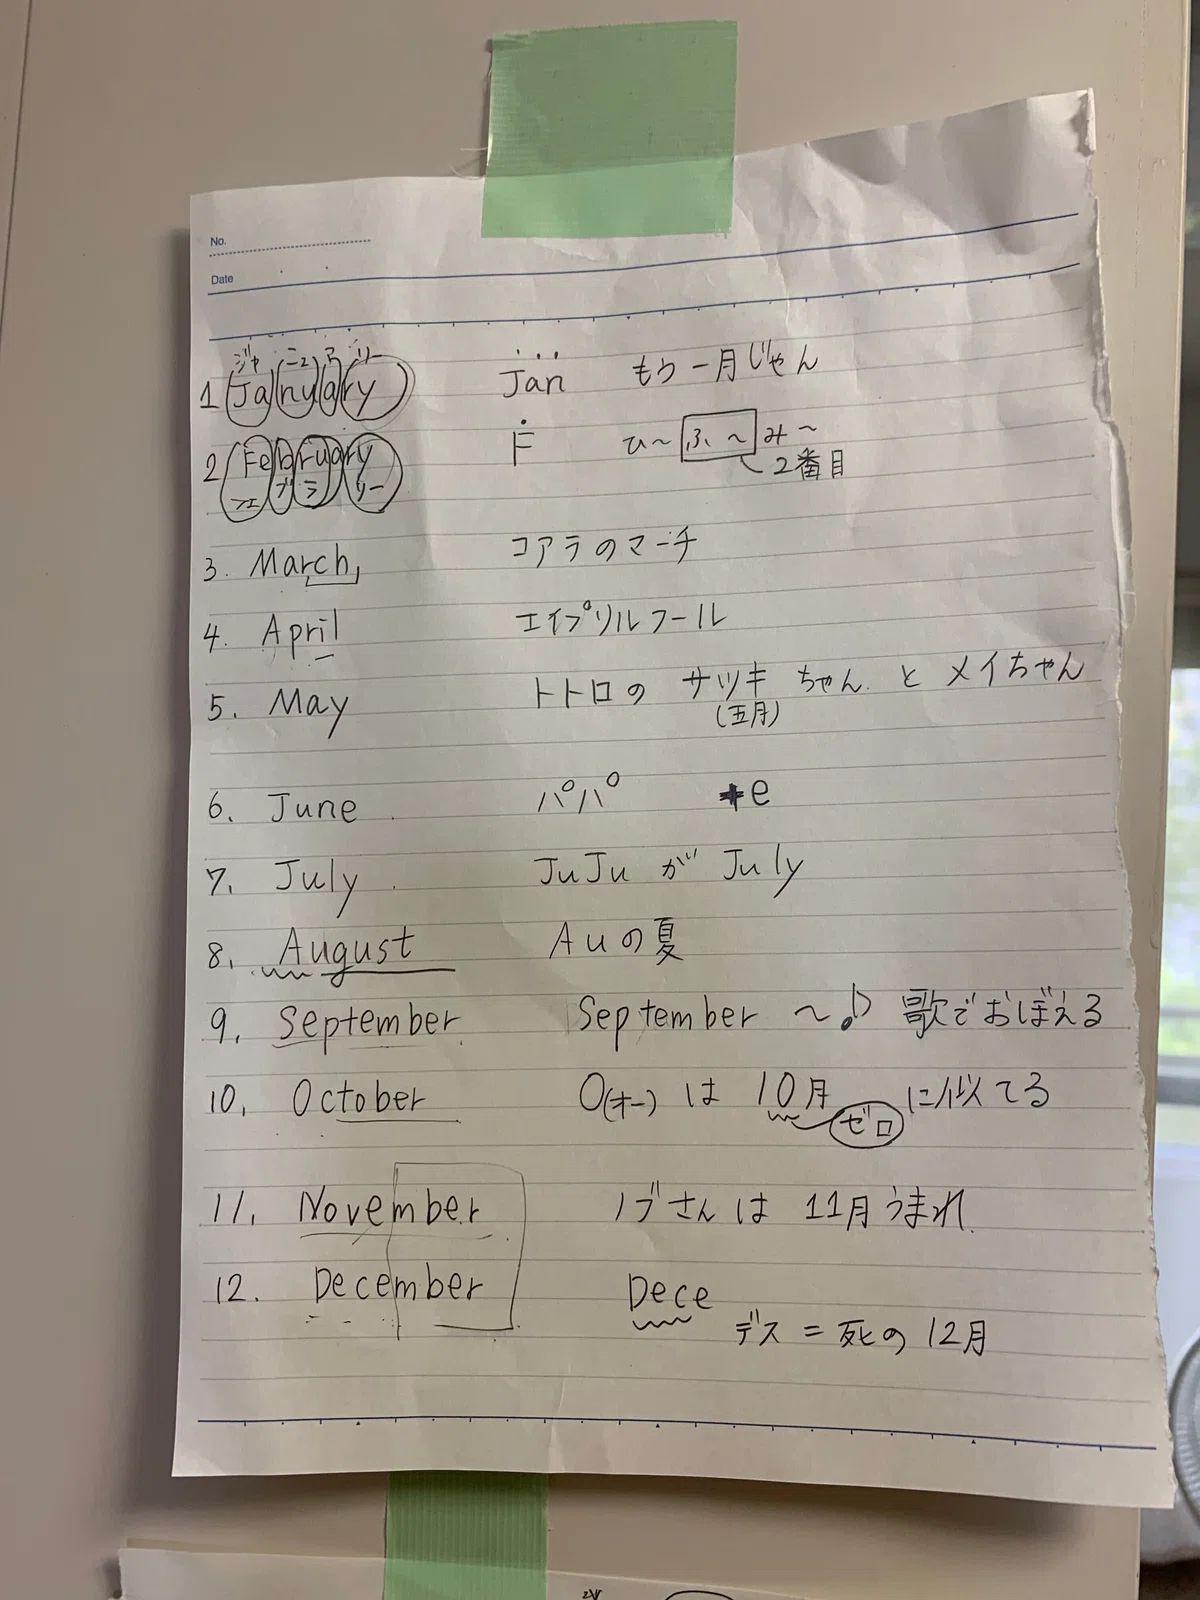 No.
Date
ジャ ニュ ア リー
1 January Jan もう一月じゃん
2 February F ひ～ふ～み～
フェ ブ ラ リー 2番目
3. March コアラのマーチ
4. April エイプリルフール
5. May トトロの サツキ ちゃん と メイちゃん
(五月)
6. June パパ e
7. July JuJu が July
8. August Auの夏
9. September September ～♪ 歌でおぼえる
10. October O(オー) は 10月 に似てる
ゼロ
11. November ノブさんは 11月うまれ
12. December Dece
デス = 死の 12月